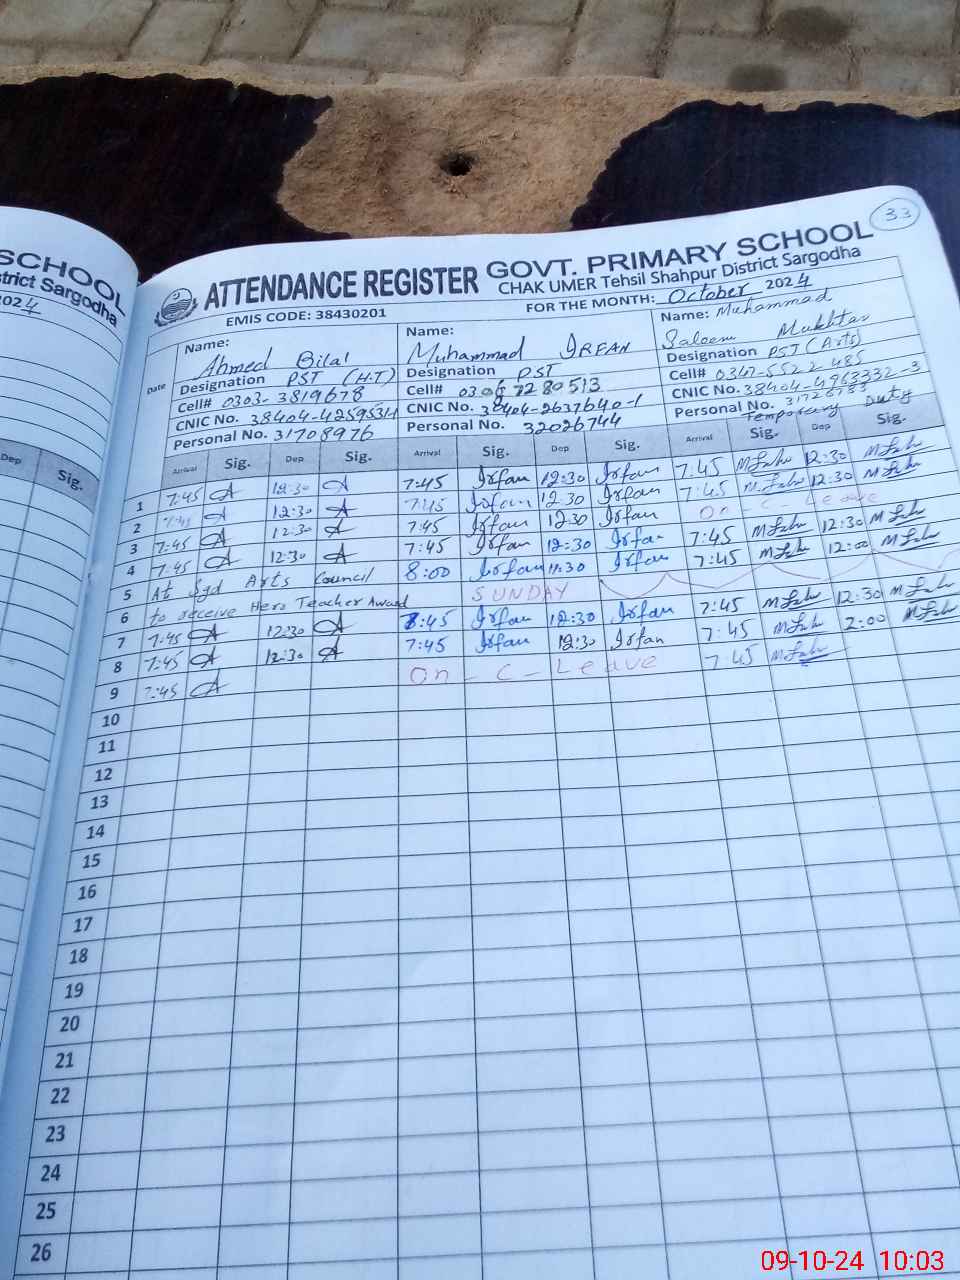 SCHOOL
strict Sargodha
2024
Dep Sig.
33
ATTENDANCE REGISTER GOVT. PRIMARY SCHOOL
CHAK UMER Tehsil Shahpur District Sargodha
EMIS CODE: 38430201 FOR THE MONTH: October 2024
Name: Ahmed Bilal Name: Muhammad IRFAN Name: Muhammad
Saleem Mukhtar
Date Designation PST (H.T) Designation PST Designation PST (Arts)
Cell# 0303-3819678 Cell# 0306 7280513 Cell# 0347-5522485
CNIC No. CNIC No. 38404-2637640-1 CNIC No. 38404-4963332-3
Personal No. 31708976 Personal No. 32026744 Personal No. 31726783
Temporary Duty
Arrival Sig. Dep Sig. Arrival Sig. Dep Sig. Arrival Sig. Dep Sig.
1 7:45 A 12:30 A 7:45 Irfan 12:30 Irfan 7:45 12:30
2 7:45 A 12:30 A 7:45 Irfan 12:30 Irfan 7:45 12:30
3 7:45 A 12:30 A 7:45 Irfan 12:30 Irfan On - C - Leave
4 7:45 A 12:30 A 7:45 Irfan 12:30 Irfan 7:45 12:30
5 At Sgd Arts Council 8:00 Irfan 11:30 Irfan 7:45 12:00
6 to receive Hero Teacher Award SUNDAY
7 7:45 A 12:30 A 7:45 Irfan 12:30 Irfan 7:45 12:30
8 7:45 A 12:30 A 7:45 Irfan 12:30 Irfan 7:45 2:00
9 7:45 A On - C - Leave 7:45
10
11
12
13
14
15
16
17
18
19
20
21
22
23
24
25
26
09-10-24 10:03